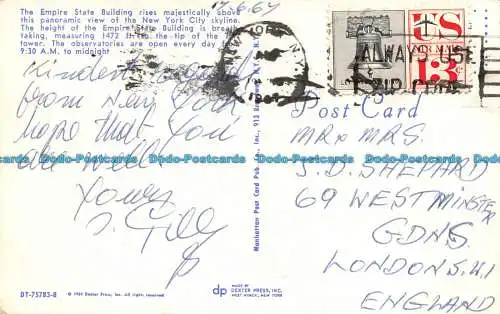 The Empire State Building rises majestically above
this panoramic view of the New York City skyline.
The height of the Empire State Building is breath-
taking, measuring 1472 ft. to the tip of the TV
tower. The observatories are open every day from
9:30 A.M. to midnight
Kindest regards
from New York
hope that you
are well
Yours
DT-75783-B
© 1964 Dexter Press, Inc. All rights reserved
Manhattan Post Card Pub. Co., Inc., 913 Broadway, N.Y.C., N.Y.
dp
MADE BY
DEXTER PRESS, INC.
WEST NYACK, NEW YORK
NEW YORK, N.Y.
ALWAYS USE
ZIP CODE
US
AIR MAIL
13¢
Post Card
MR & MRS.
J. D. SHEPHARD
69 WESTMINSTER
GDNS.
LONDON S.W.1
ENGLAND
Dodo-Postcards Dodo-Postcards Dodo-Postcards Dodo-Postcards Dodo-Postcards